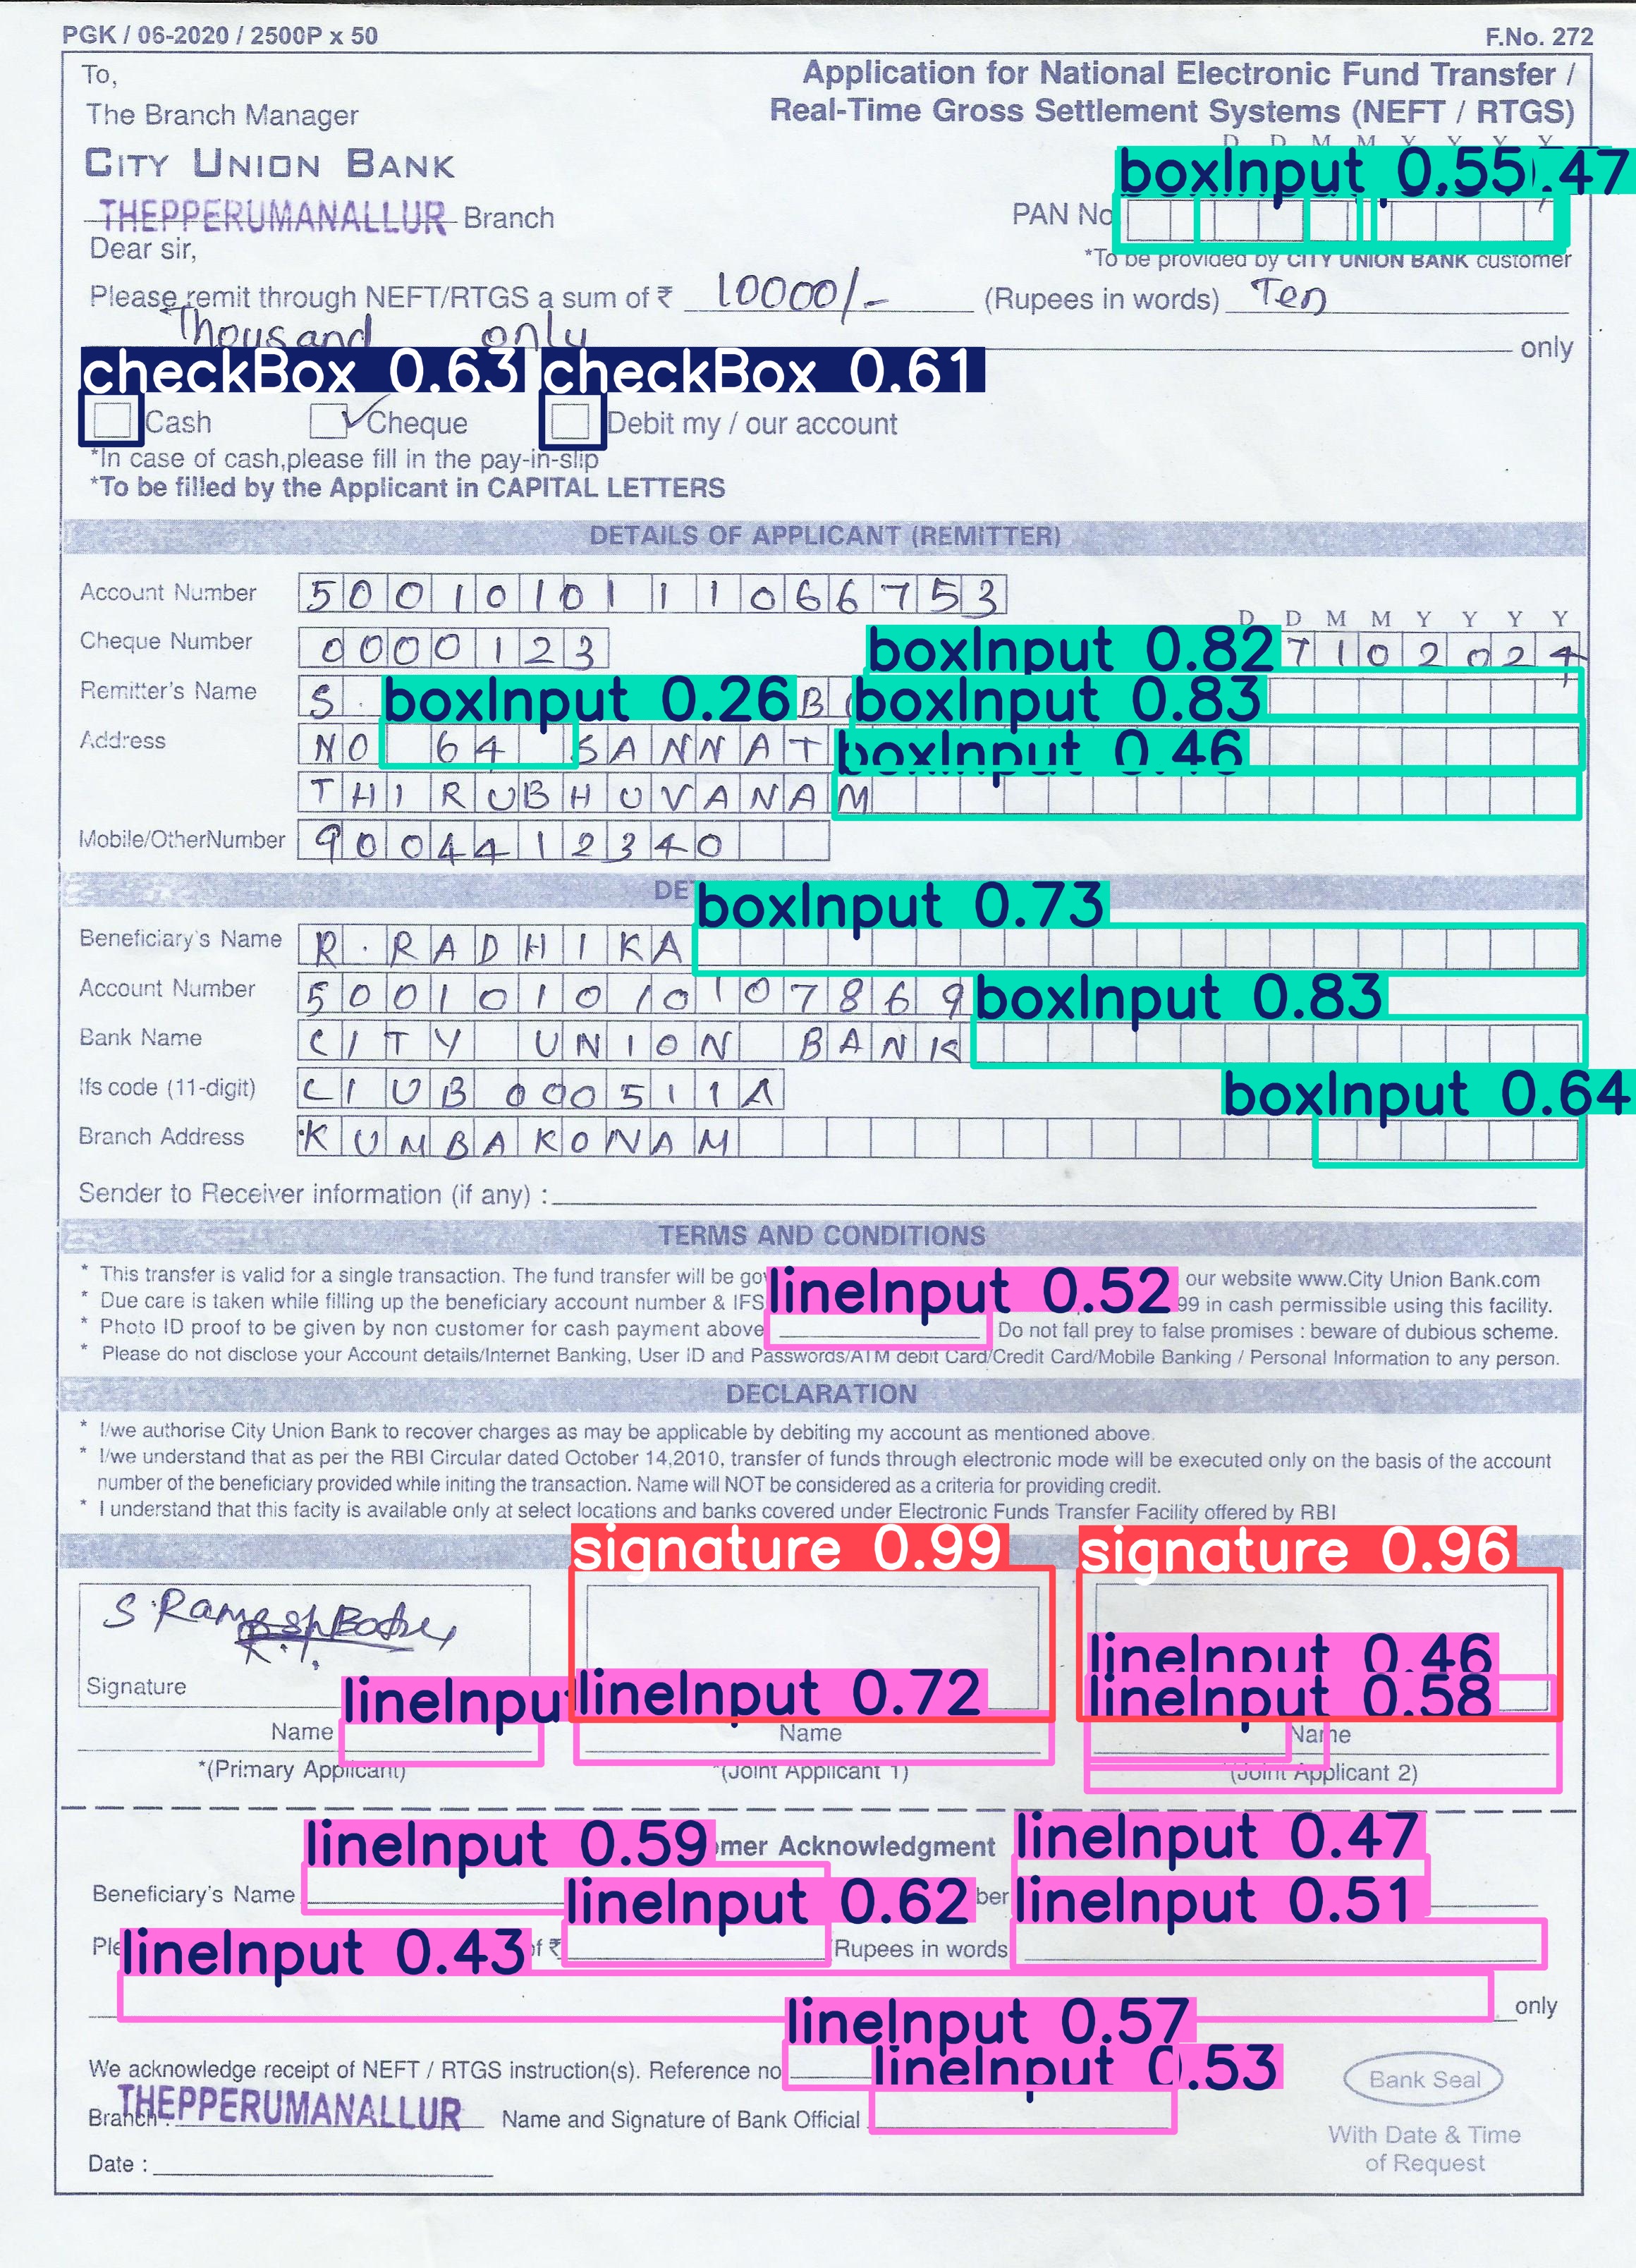 PGK / 06-2020 / 2500P x 50
F.No. 272
To,
The Branch Manager
CITY UNION BANK
THEPPERUMANALLUR Branch
Dear sir,
Application for National Electronic Fund Transfer /
Real-Time Gross Settlement Systems (NEFT / RTGS)
D D M M Y Y Y Y
boxInput 0.55 .47
PAN No
*To be provided by CITY UNION BANK customer
Please remit through NEFT/RTGS a sum of ₹ 10000/- (Rupees in words) Ten
Thousand only only
checkBox 0.63 checkBox 0.61
Cash Cheque Debit my / our account
*In case of cash,please fill in the pay-in-slip
*To be filled by the Applicant in CAPITAL LETTERS
DETAILS OF APPLICANT (REMITTER)
Account Number 5001010111066753
D D M M Y Y Y Y
Cheque Number 0000123 boxInput 0.82 7102024
Remitter's Name S. boxInput 0.26 B boxInput 0.83
Address NO 64 SANNAT boxInput 0.46
THIRUBHUVANAM
Mobile/OtherNumber 9004412340
DE boxInput 0.73
Beneficiary's Name R.RADHIKA
Account Number 500101010107869 boxInput 0.83
Bank Name CITY UNION BANK
Ifs code (11-digit) CIUB000511A boxInput 0.64
Branch Address KUMBAKONAM
Sender to Receiver information (if any) :
TERMS AND CONDITIONS
* This transfer is valid for a single transaction. The fund transfer will be our website www.City Union Bank.com
* Due care is taken while filling up the beneficiary account number & IFS lineInput 0.52 99 in cash permissible using this facility.
* Photo ID proof to be given by non customer for cash payment above Do not fall prey to false promises : beware of dubious scheme.
* Please do not disclose your Account details/Internet Banking, User ID and Passwords/ATM debit Card/Credit Card/Mobile Banking / Personal Information to any person.
DECLARATION
* I/we authorise City Union Bank to recover charges as may be applicable by debiting my account as mentioned above.
* I/we understand that as per the RBI Circular dated October 14,2010, transfer of funds through electronic mode will be executed only on the basis of the account
number of the beneficiary provided while initing the transaction. Name will NOT be considered as a criteria for providing credit.
* I understand that this facity is available only at select locations and banks covered under Electronic Funds Transfer Facility offered by RBI
signature 0.99 signature 0.96
S Ramesh Babu
lineInput 0.46
Signature lineInpu lineInput 0.72 lineInput 0.58
Name Name Name
*(Primary Applicant) *(Joint Applicant 1) (Joint Applicant 2)
lineInput 0.59 omer Acknowledgment lineInput 0.47
Beneficiary's Name lineInput 0.62 ber lineInput 0.51
Ple lineInput 0.43 of ₹ Rupees in words
only
lineInput 0.57
We acknowledge receipt of NEFT / RTGS instruction(s). Reference no lineInput 0.53
Branch : THEPPERUMANALLUR Name and Signature of Bank Official
Date :
Bank Seal
With Date & Time
of Request